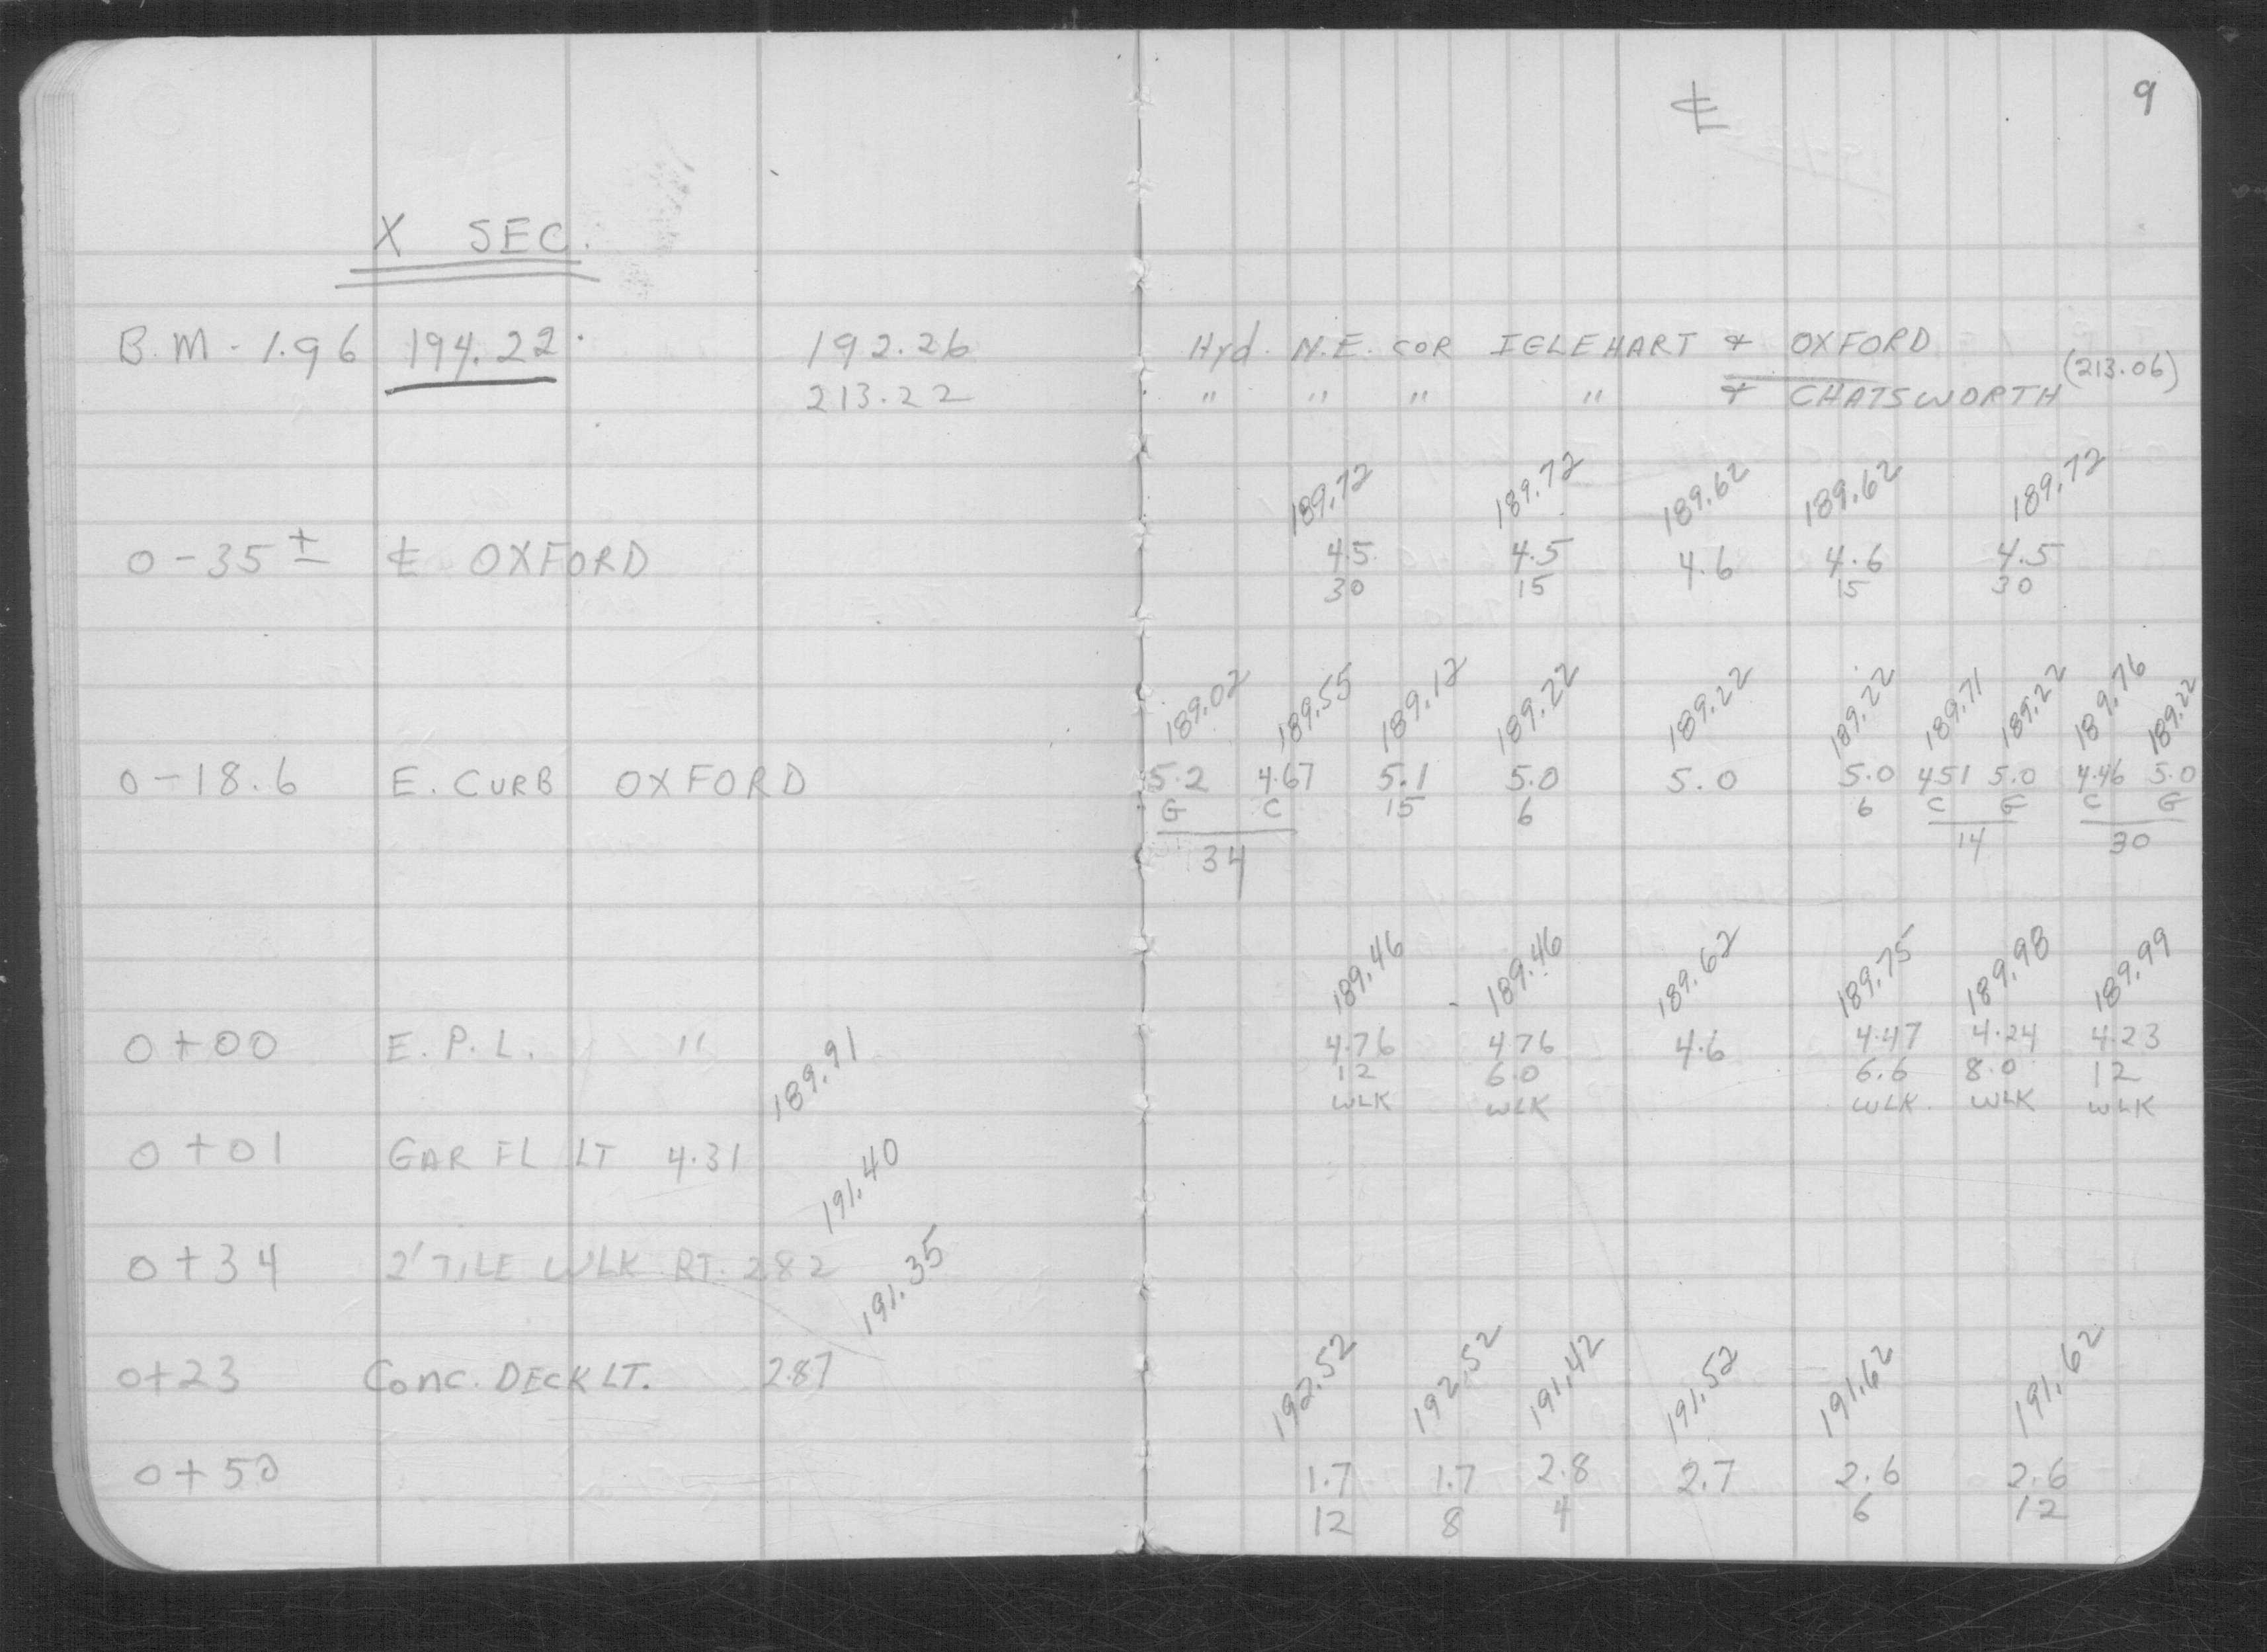 ℄ 9
X SEC.
B.M - 1.96 194.22 192.26 Hyd. N.E. COR IGLEHART & OXFORD
213.22 " " " " & CHATSWORTH (213.06)
189.72 189.72 189.62 189.62 189.72
0-35± ℄ OXFORD 4.5 4.5 4.6 4.6 4.5
30 15 15 30
189.02 189.55 189.12 189.22 189.22 189.22 189.71 189.22 189.76 189.22
0-18.6 E. CURB OXFORD 5.2 4.67 5.1 5.0 5.0 5.0 4.51 5.0 4.46 5.0
G C 15 6 6 C G C G
34 14 30
189.46 189.46 189.62 189.75 189.98 189.99
0+00 E. P. L. " 4.76 4.76 4.6 4.47 4.24 4.23
12 6.0 6.6 8.0 12
WLK WLK WLK WLK WLK
189.91
0+01 GAR FL LT 4.31
191.40
0+34 2' TILE WLK RT. 2.82
191.35
0+23 Conc. DECK LT. 2.87
192.52 192.52 191.42 191.52 191.62 191.62
0+50 1.7 1.7 2.8 2.7 2.6 2.6
12 8 4 6 12